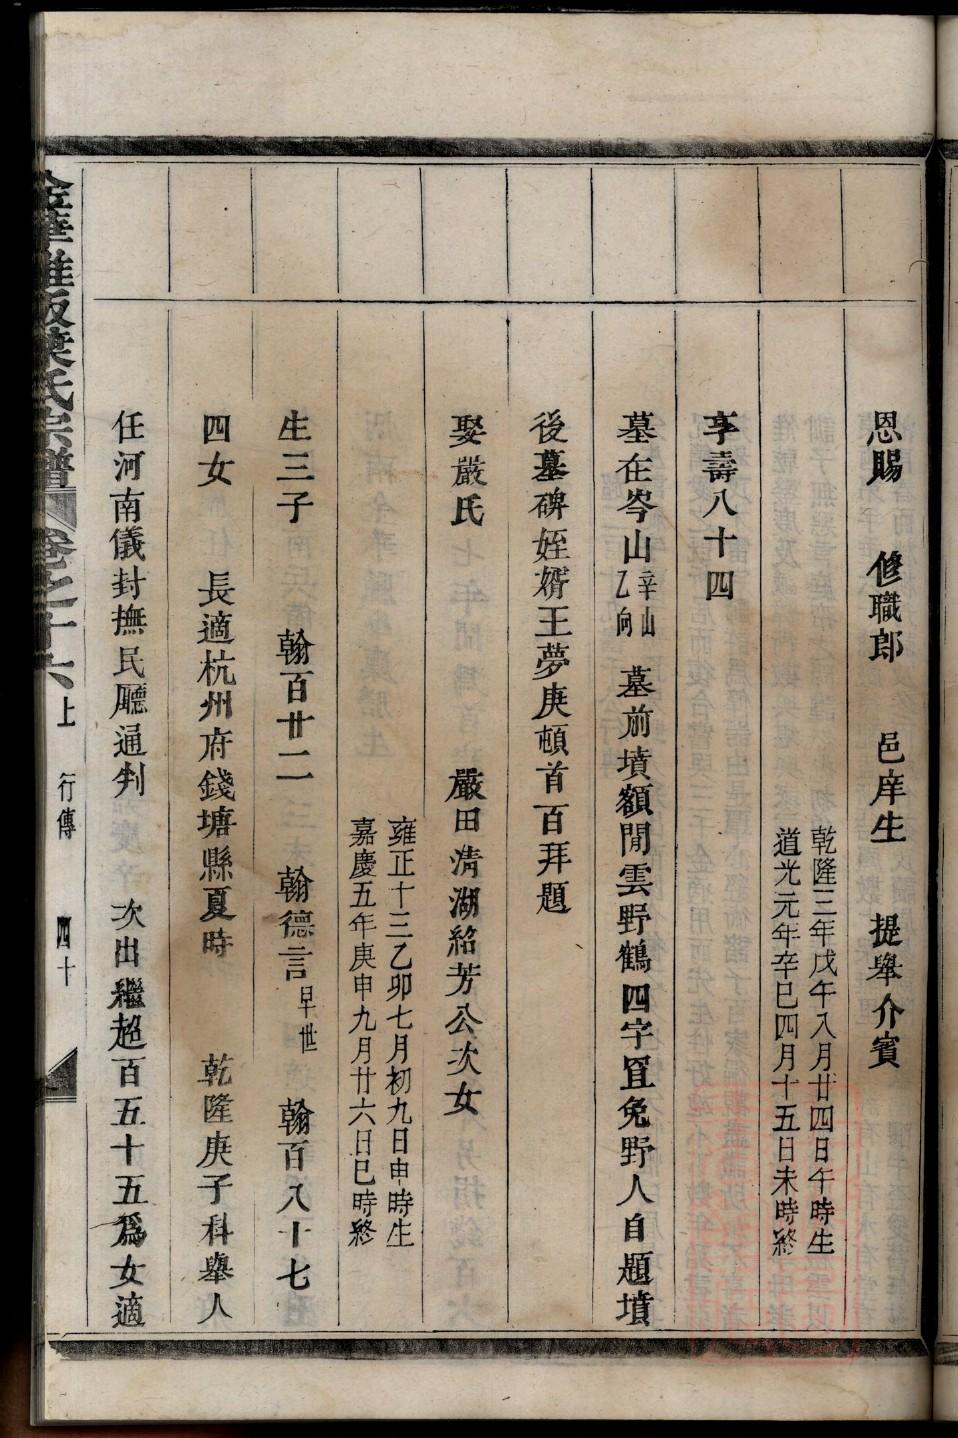 恩賜 修職郎 邑庠生 提舉介賓
乾隆三年戊午八月廿四日午時生
道光元年辛巳四月十五日未時終
享壽八十四
墓在岑山辛山乙向 墓前墳額閒雲野鶴四字罝兔野人自題墳
後墓碑姪婿王夢庚頓首百拜題
娶嚴氏 嚴田清湖紹芳公次女
雍正十三乙卯七月初九日申時生
嘉慶五年庚申九月廿六日巳時終
生三子 翰百廿二 翰德言早世 翰百八十七
四女 長適杭州府錢塘縣夏時 乾隆庚子科舉人
任河南儀封撫民廳通判 次出繼超百五十五爲女適
氏宗譜 卷之十六上 行傳 四十